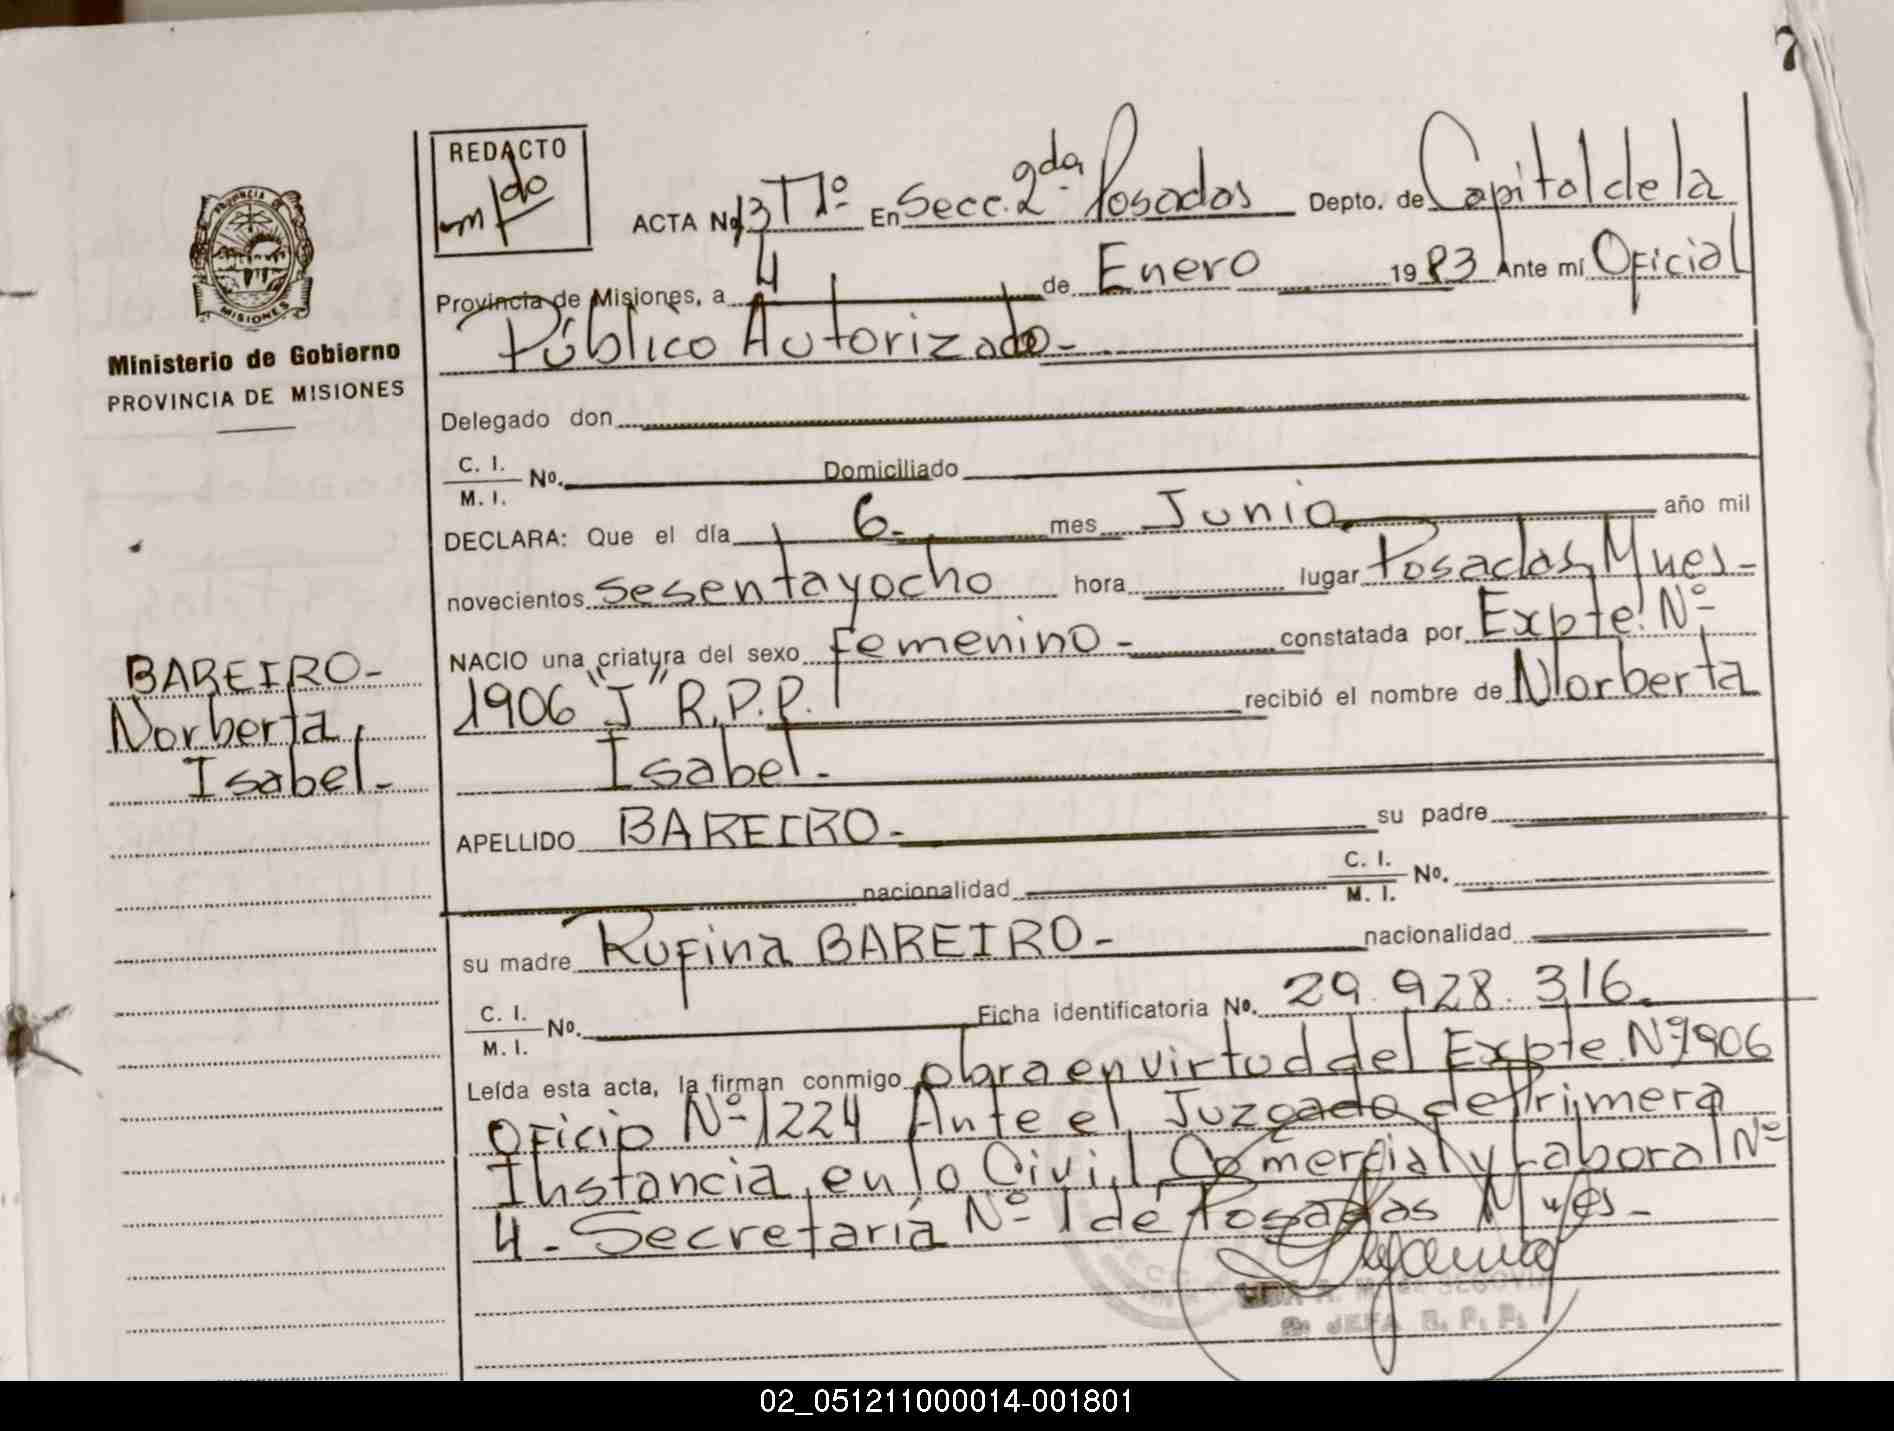 7
REDACTO
PROVINCIA DE
MISIONES
Ministerio de Gobierno
PROVINCIA DE MISIONES
ACTA No 13 Tº En Secc. 2da Posadas Depto. de Capital de la
Provincia de Misiones, a 4 de Enero 1983 Ante mí Oficial
Público Autorizado-
Delegado don
C. I.
M. I. No. Domiciliado
DECLARA: Que el día 6. mes Junio año mil
novecientos sesentayocho hora lugar Posadas, Mnes-
NACIO una criatura del sexo femenino- constatada por Expte. Nº
1906 "J" R.P.P. recibió el nombre de Norberta
Isabel.
BAREIRO-
Norberta,
Isabel-
APELLIDO BAREIRO- su padre
nacionalidad C. I.
M. I. No.
su madre Rufina BAREIRO- nacionalidad
C. I.
M. I. No. Ficha identificatoria No. 29.928.316.
Leída esta acta, la firman conmigo obra en virtud del Expte. Nº 1906
Oficio Nº 1224 Ante el Juzgado de Primera
Instancia en lo Civil, Comercial y Laboral Nº
4. Secretaría Nº 1 de Posadas Mnes-
SEGOVIA
JEFA R. P. P.
02_051211000014-001801